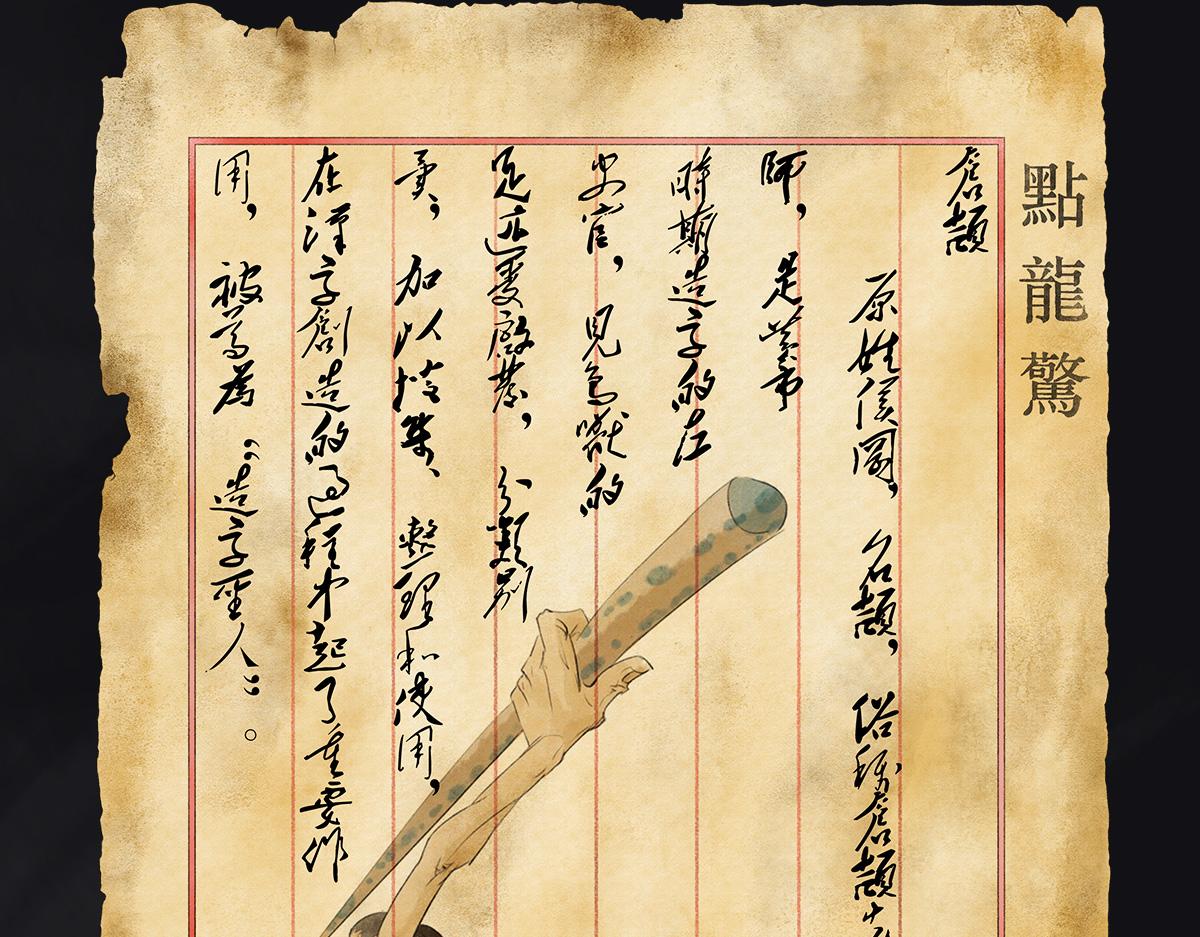 點龍驚
倉頡
原姓侯岡，名頡，俗稱倉頡
師，是黃帝
時期造字的左
史官，見鳥獸的
足迹受啟發，分類別
異，加以搜集、整理和使用，
在漢字創造的過程中起了重要作
用，被尊為“造字聖人”。